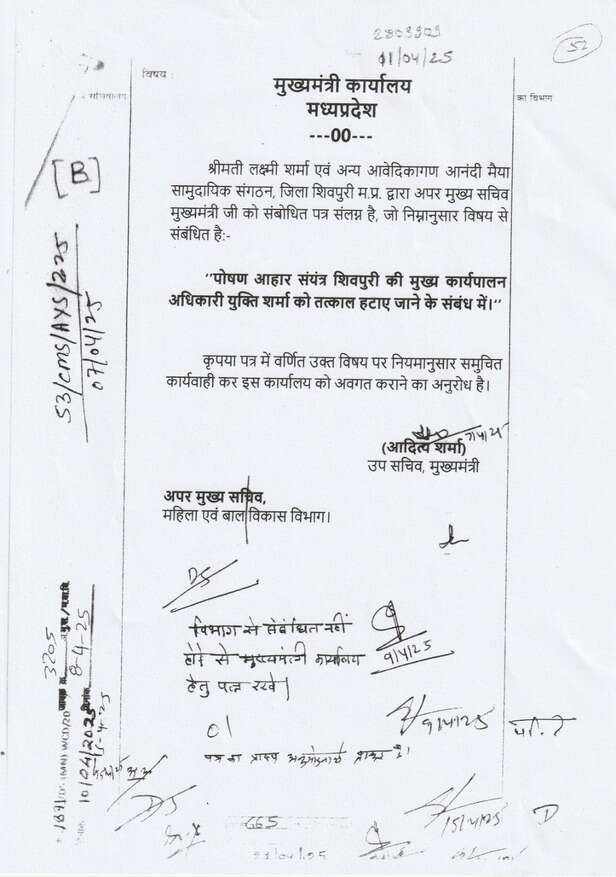 2803303
01/04/25
52
विषय :
सचिवालय
का विभाग
मुख्यमंत्री कार्यालय
मध्यप्रदेश
---00---
[B]
श्रीमती लक्ष्मी शर्मा एवं अन्य आवेदिकागण आनंदी मैया
सामुदायिक संगठन, जिला शिवपुरी म.प्र. द्वारा अपर मुख्य सचिव
मुख्यमंत्री जी को संबोधित पत्र संलग्न है, जो निम्नानुसार विषय से
संबंधित है:-
"पोषण आहार संयंत्र शिवपुरी की मुख्य कार्यपालन
अधिकारी युक्ति शर्मा को तत्काल हटाए जाने के संबंध में।"
53/CMS/AYS/225
07/04/25
कृपया पत्र में वर्णित उक्त विषय पर नियमानुसार समुचित
कार्यवाही कर इस कार्यालय को अवगत कराने का अनुरोध है।
7/4/25
(आदित्य शर्मा)
उप सचिव, मुख्यमंत्री
अपर मुख्य सचिव,
महिला एवं बाल विकास विभाग।
DS
विभाग से संबंधित नहीं
होने से मुख्यमंत्री कार्यालय
हेतु पत्र रखें।
9/4/25
3205
8-4-25
10/04/2025
9/4/25
01
पत्र का प्रारूप अनुमोदनार्थ प्रस्तुत है।
DS
15/4/25
D
665